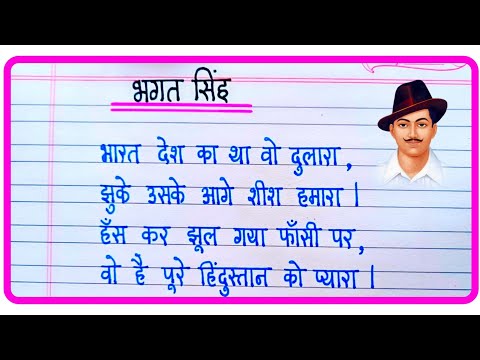 भगत सिंह
भारत देश का था वो दुलारा,
झुके उसके आगे शीश हमारा।
हँस कर झूल गया फाँसी पर,
वो है पूरे हिंदुस्तान को प्यारा।